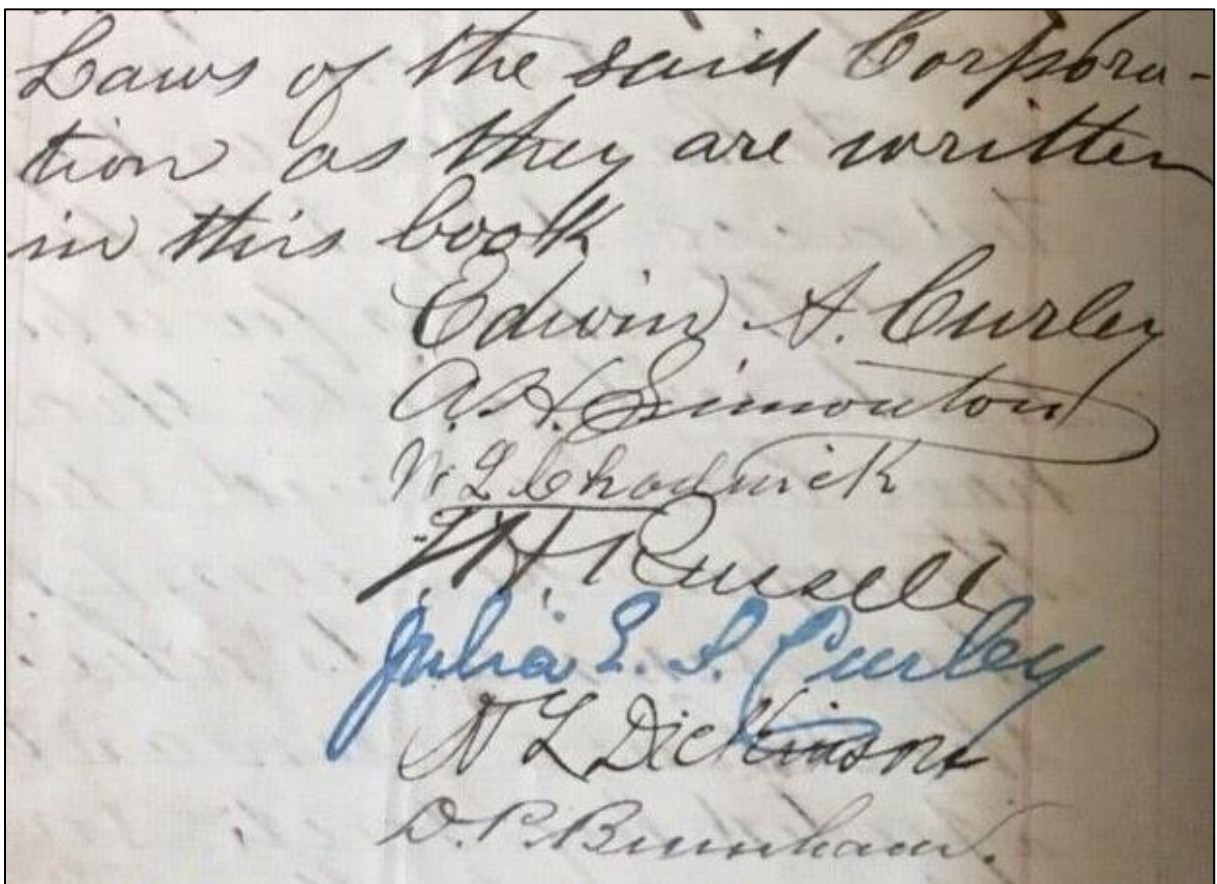 Laws of the said Corpora-
tion as they are written
in this book
Edwin A. Curley
A. H. Simonton
W. L. Chadwick
J. H. Russell
Julia E. S. Curley
N L Dickinson
D. P. Burnham.